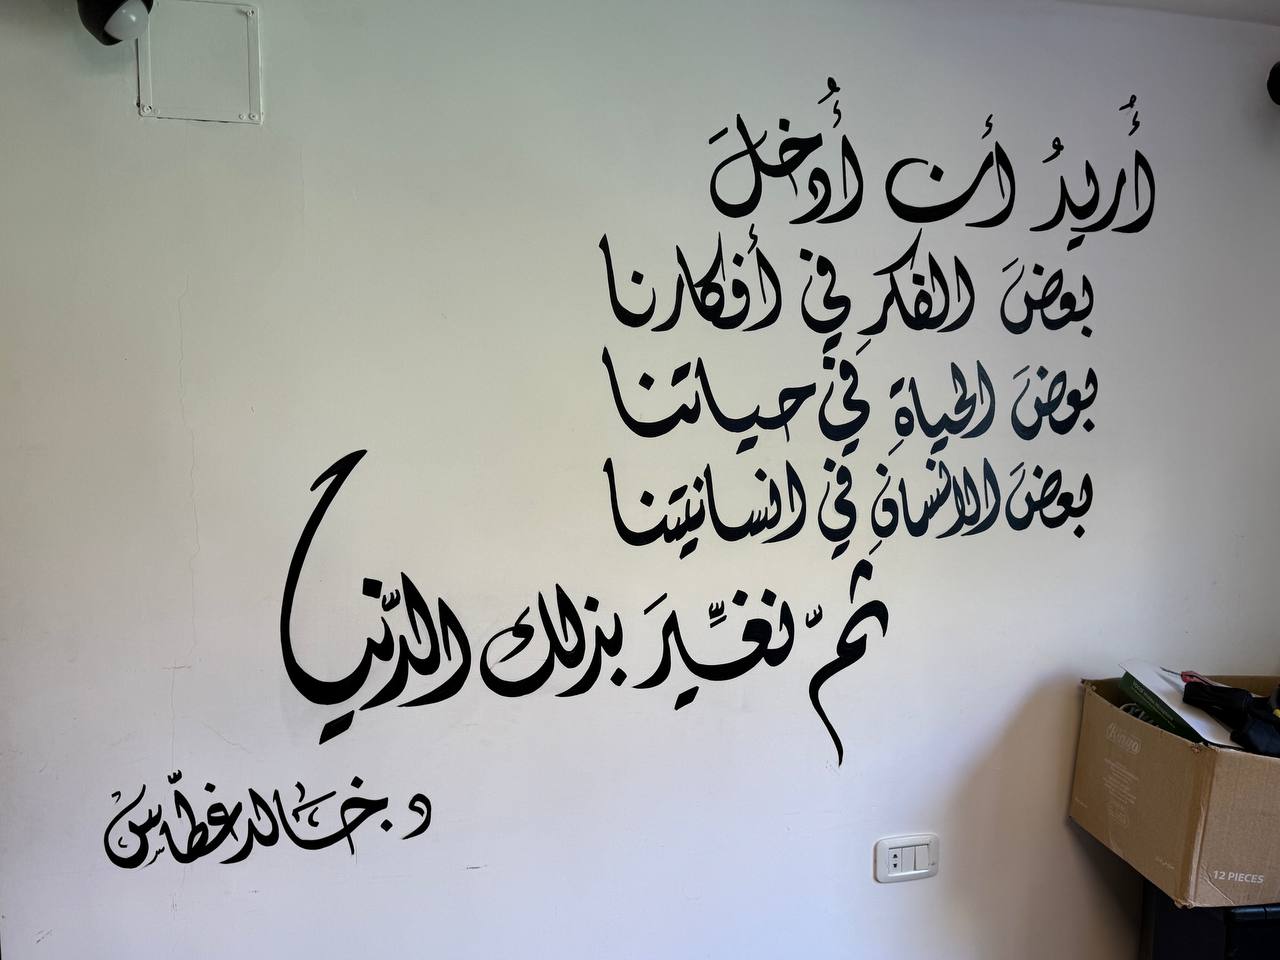 أُريدُ أن أُدخلَ
بعضَ الفكرِ في أفكارنا
بعضَ الحياةِ في حياتنا
بعضَ الانسانِ في انسانيتنا
ثمّ نغيّرَ بذلك الدّنيا
د. خالد غطّاس
12 PIECES